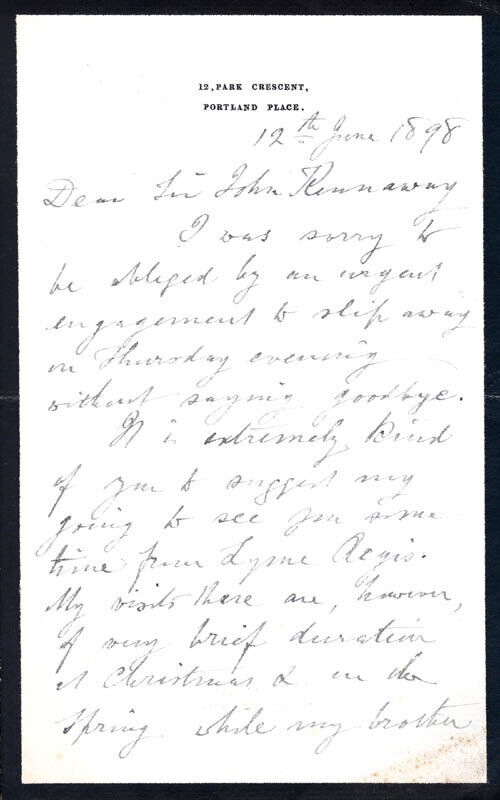 12, PARK CRESCENT,
PORTLAND PLACE.
12th June 1898
Dear Sir John Kennaway
I was sorry to
be obliged by an urgent
engagement to slip away
on Thursday evening
without saying goodbye.
It is extremely kind
of you to suggest my
going to see you some
time from Lyme Regis.
My visits there are, however,
of very brief duration
at Christmas & in the
Spring while my brother